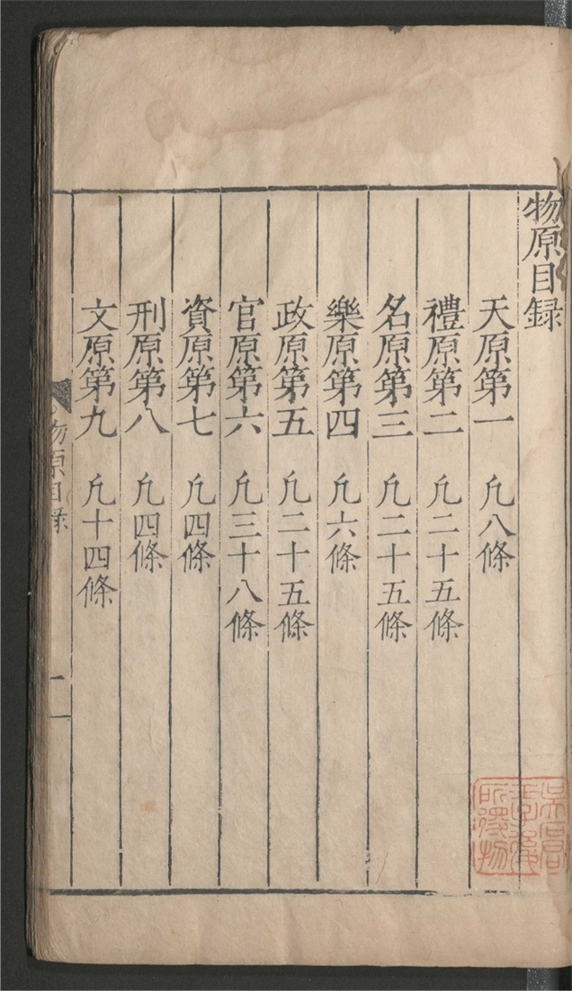 物原目録
天原第一 凢八條
禮原第二 凢二十五條
名原第三 凢二十五條
樂原第四 凢六條
政原第五 凢二十五條
官原第六 凢三十八條
資原第七 凢四條
刑原第八 凢四條
文原第九 凢十四條
物原目録
一